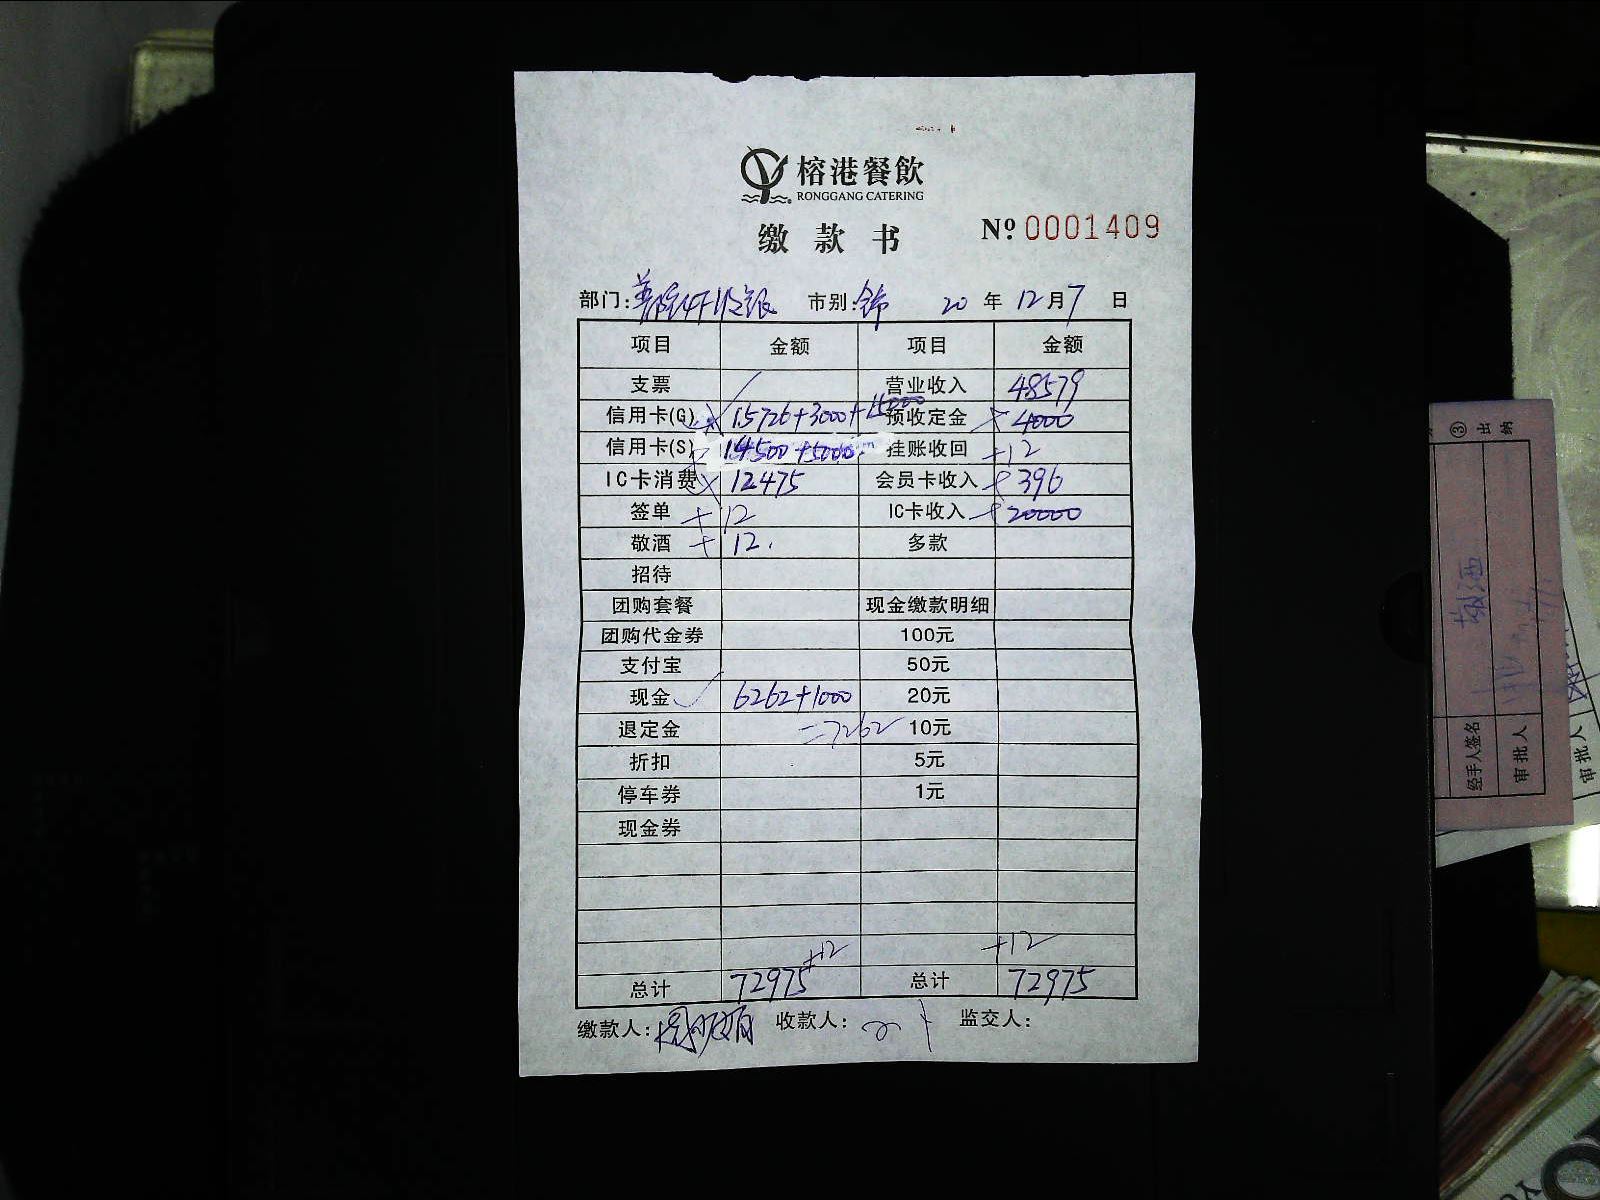 榕港餐飲
RONGGANG CATERING
缴款书 Nº 0001409
部门: 市别: 20 年 12 月 7 日
项目 金额 项目 金额
支票 营业收入 48579
信用卡(G) 15726+3000+15000 预收定金 + 4000
信用卡(S) 14500+5000 挂账收回 +12
IC卡消费 12475 会员卡收入 + 396
签单 +12 IC卡收入 + 20000
敬酒 + 12. 多款
招待
团购套餐 现金缴款明细
团购代金券 100元
支付宝 50元
现金 6262+1000 20元
退定金 =7262 10元
折扣 5元
停车券 1元
现金券
+12 +12
总计 72975 总计 72975
缴款人: 收款人: 监交人:
③ 出纳
敬酒
经手人签名
审批人
审批人